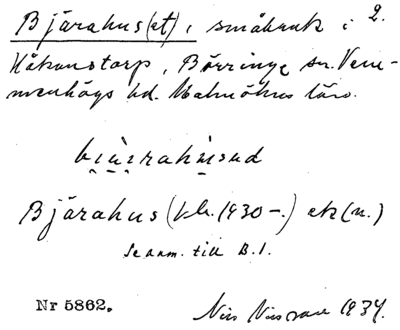 Bjärahus(et), småbruk i 2.
Håkanstorp, Börringe sn. Vem-
menhögs hd. Malmöhus län.
Bjärahus (kb. 1930-.) ek(n.)
Se anm. till B. 1.
Nr 5862.
Nils 1934.